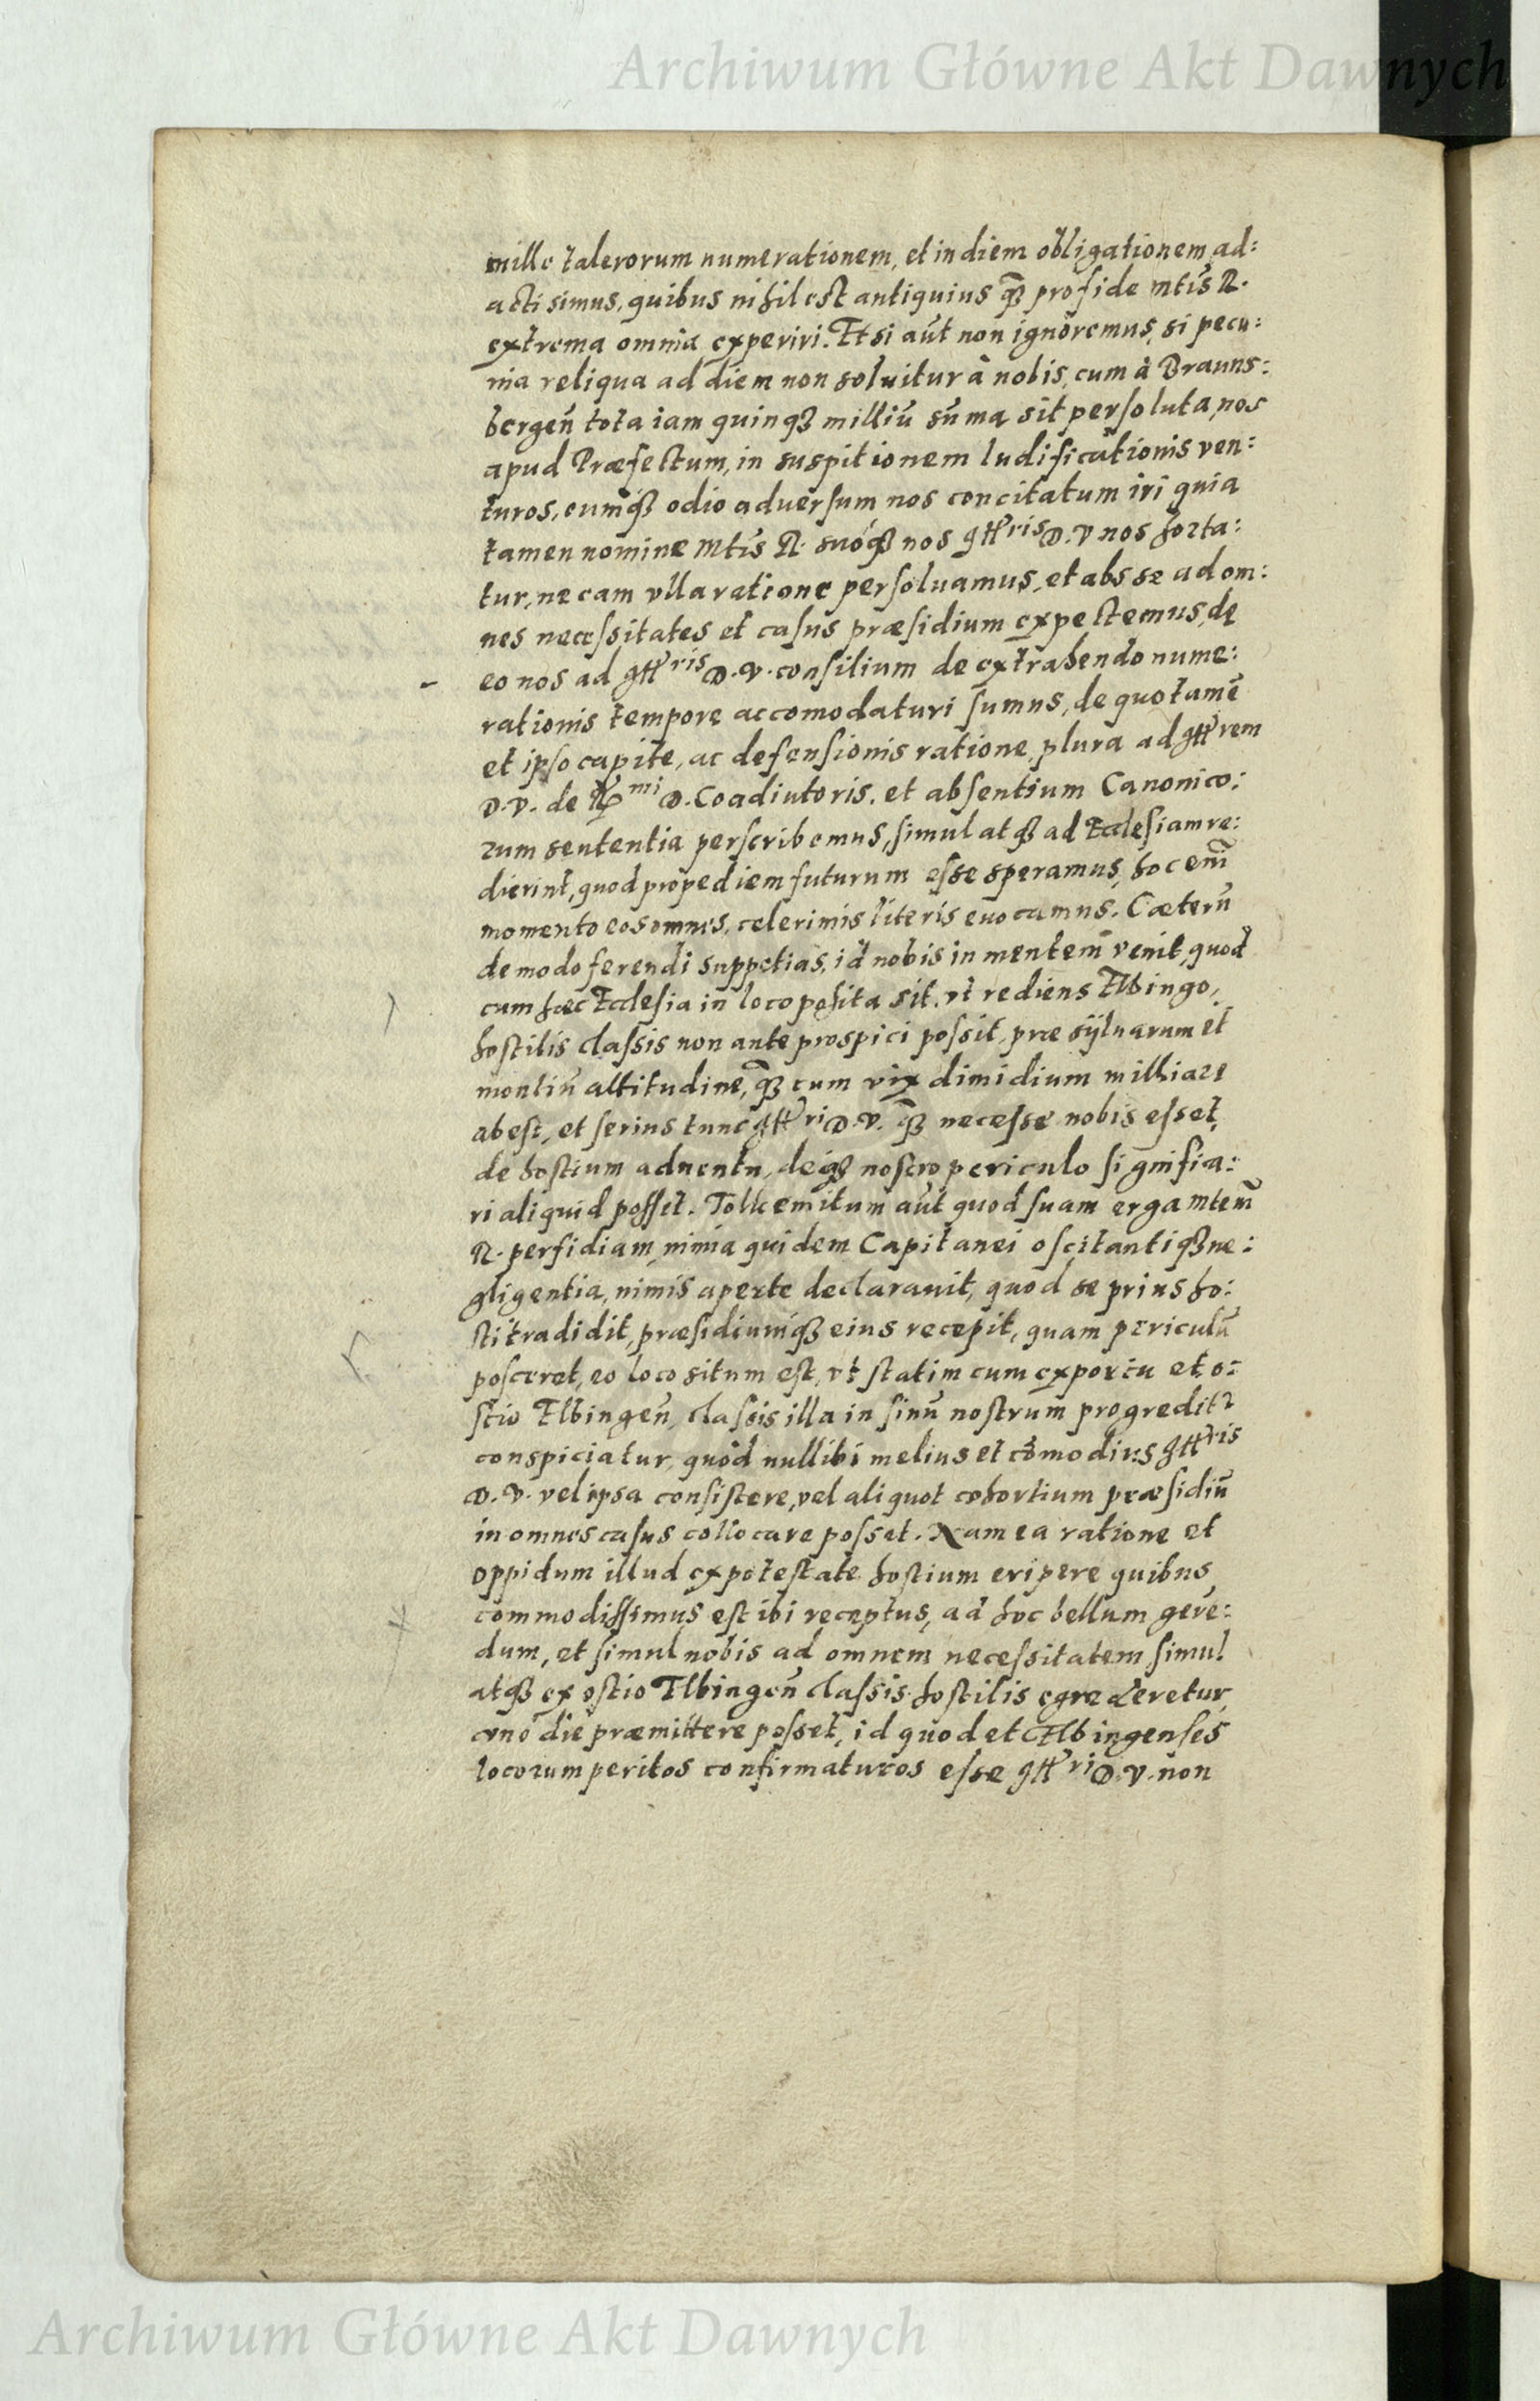 Archiwum Główne Akt Dawnych
mille talerorum numerationem, et in diem obligationem ad:
acti simus, quibus nihil est antiquius q̃ȝ pro fide mt̃is R.
extrema omnia experiri. Et si aũt non ignoremus, si pecu:
nia reliqua ad diem non soluitur à nobis, cum à Brauns:
bergeñ tota iam quinqȝ milliũ sũma sit persoluta, nos
apud Præfectum, in suspitionem ludificationis ven:
turos, eumqȝ odio aduersum nos concitatum iri quia
tamen nomine Mt̃is R. suóqȝ nos gttris D. V nos horta:
tur, ne eam vlla ratione persoluamus, et abs se ad om:
nes necessitates et casus præsidium expectemus, de
eo nos ad gttris D. V. consilium de extrahendo nume:
rationis tempore accomodaturi sumus, de quo tamẽ
et ipso capite, ac defensionis ratione, plura ad gttrem
D. V. de Rmi D. Coadiutoris, et absentium Canonico:
rum sententia perscribemus, simul atqȝ ad Ecclesiam re:
dierint, quod propediem futurum esse speramus, hoc em̃
momento eos omnes, celerimis literis euocamus. Cæterũ
de modo ferendi suppetias, id nobis in mentem venit, quod
cum hæc Ecclesia in loco posita sit, vt rediens Elbingo,
hostilis classis non ante prospici possit, præ syluarum et
montiũ altitudine, q̃ȝ cum vix dimidium milliare
abest, et serius tunc gttri D. V. q̃ȝ necesse nobis esset,
de hostium aduentu, deqȝ nostro periculo significa:
ri aliquid posset. Tolkemitum aũt quod suam erga mtem̃
R. perfidiam, nimia quidem Capitanei oscitantiqȝ ne:
gligentia, nimis aperte declarauit, quod se prius ho:
sti tradidit, præsidiumqȝ eius recepit, quam periculũ
posceret, eo loco situm est, vt statim cum ex portu et o:
stio Elbingeñ, classis illa in sinũ nostrum progredit²
conspiciatur, quòd nullibi melius et cõmodius gttris
D. V. vel ipsa consistere, vel aliquot cohortium præsidiũ
in omnes casus collocare posset. Nam ea ratione et
oppidum illud ex potestate hostium eripere quibus
commodissimus est ibi receptus, ad hoc bellum gerẽ:
dum, et simul nobis ad omnem necessitatem, simul
atqȝ ex ostio Elbingeñ classis hostilis egrederetur,
vno die præmittere posset, id quod et Elbingenses
locorum peritos confirmaturos esse gttri D. V. non
Archiwum Główne Akt Dawnych